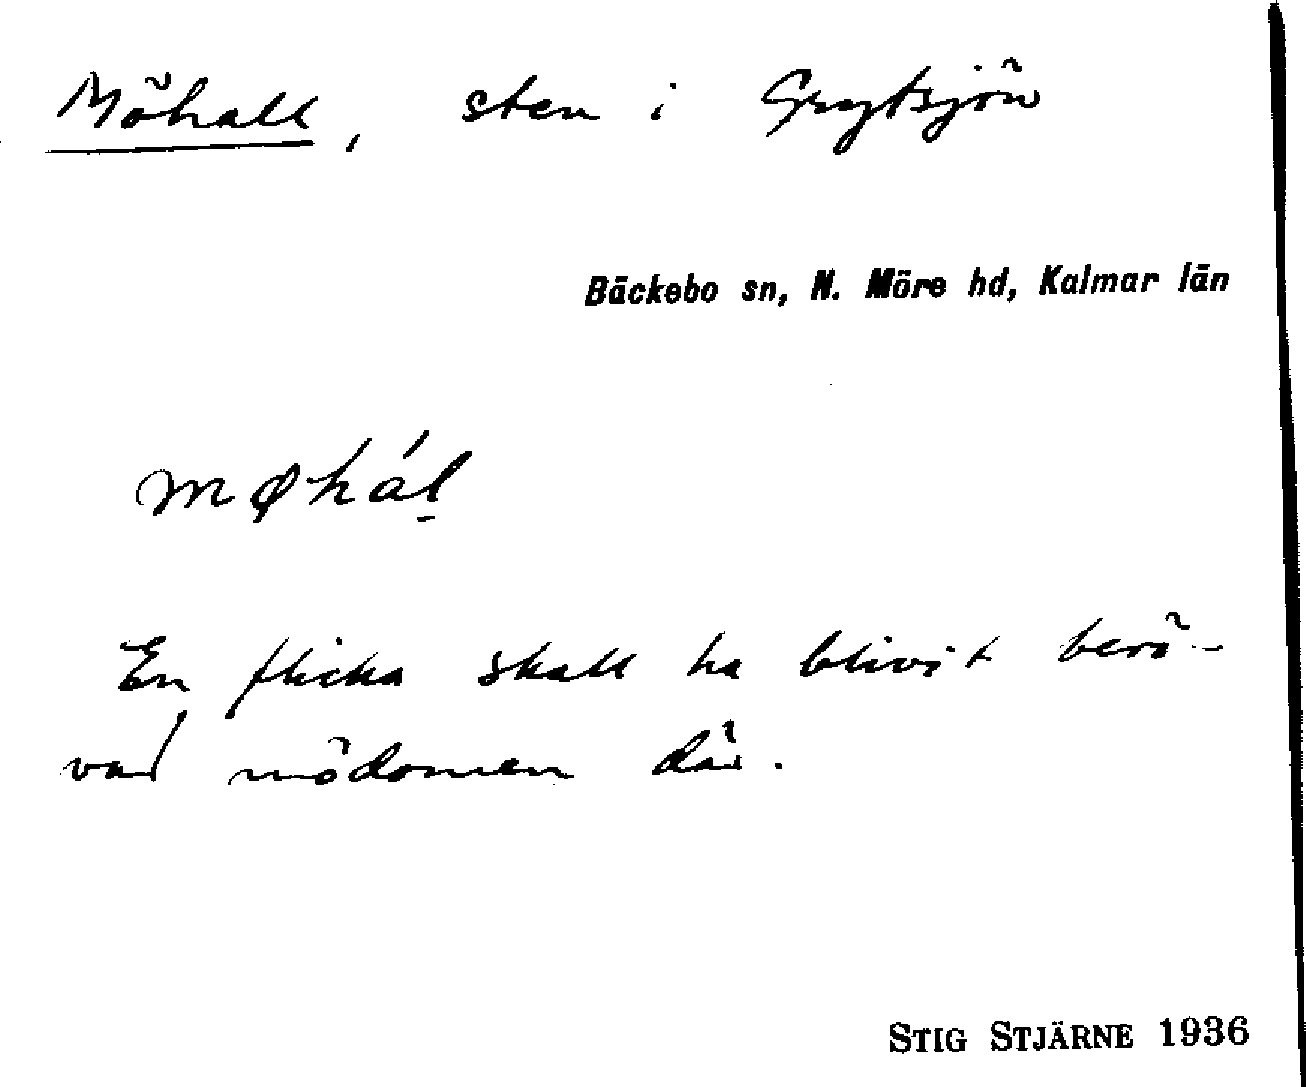 Möhall, sten i Grytsjön
Bäckebo sn, N. Möre hd, Kalmar län
møhál̠
En flicka skall ha blivit berö-
vad mödomen där.
STIG STJÄRNE 1936